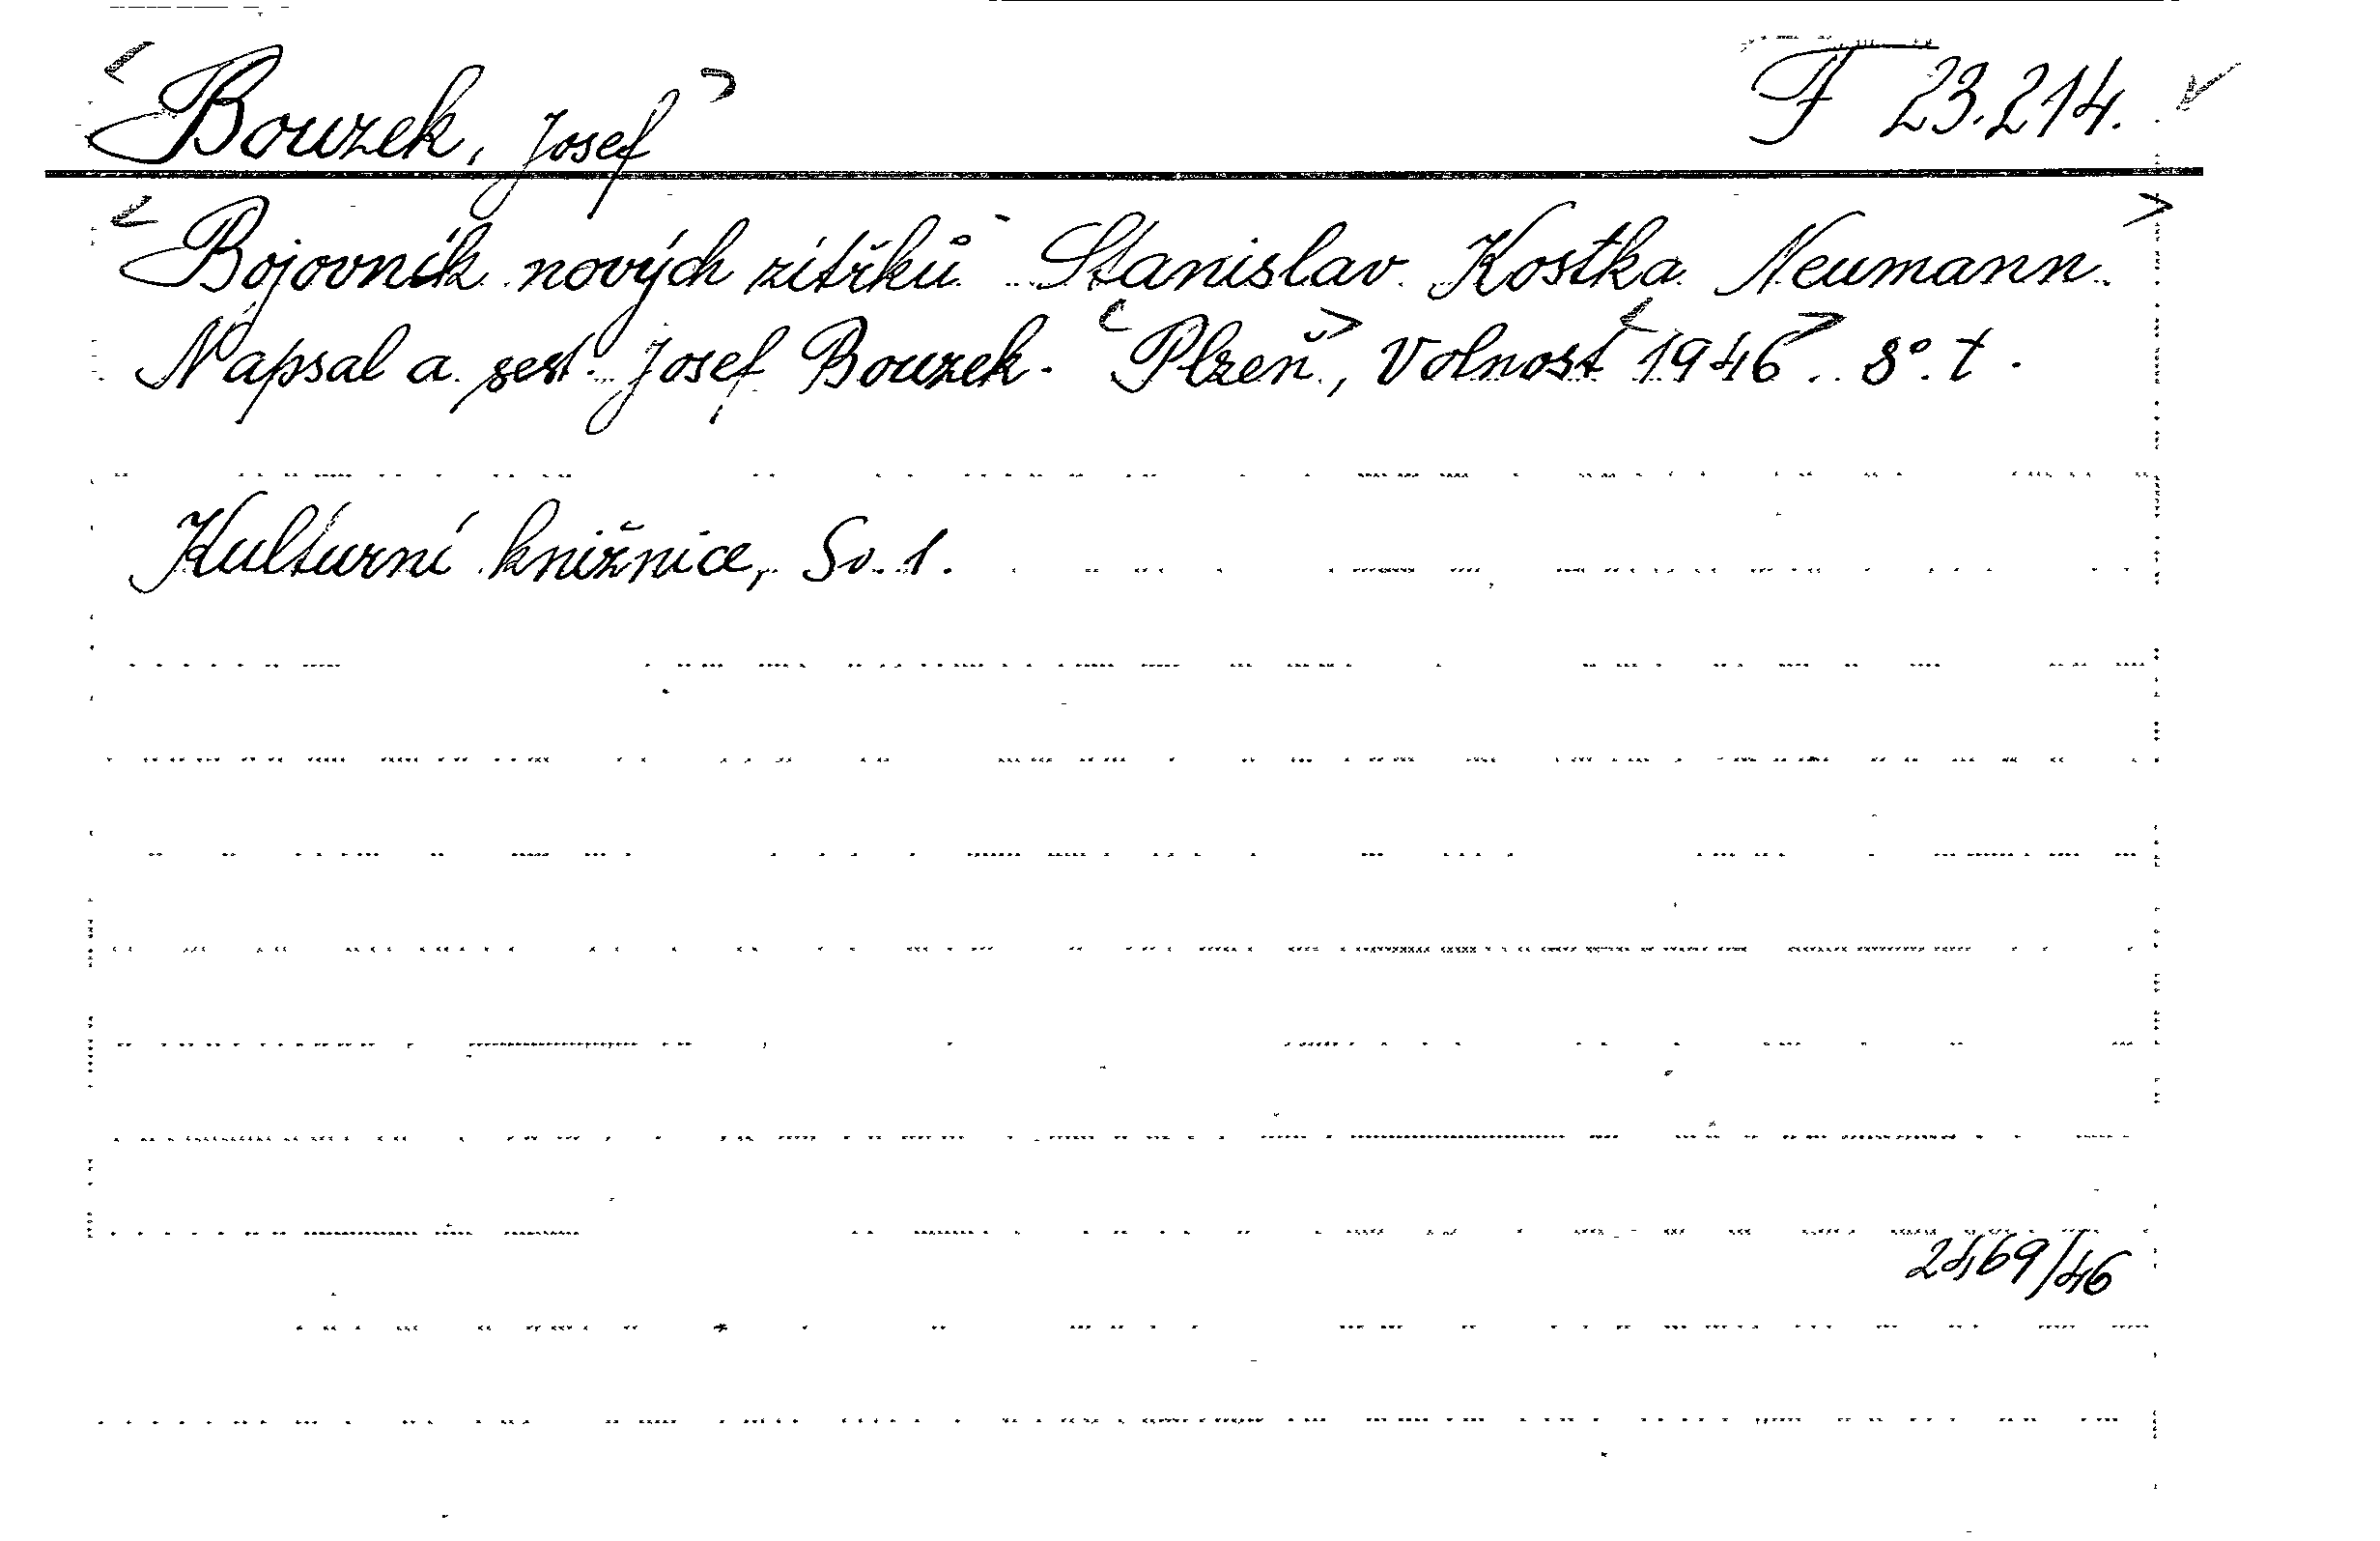 Bouzek, Josef
F 23.214.
Bojovník nových zítřků Stanislav Kostka Neumann.
Napsal a sest. Josef Bouzek. Plzeň, Volnost 1946. 8°. t.
Kulturní knižnice, Sv. 1.
2469/46